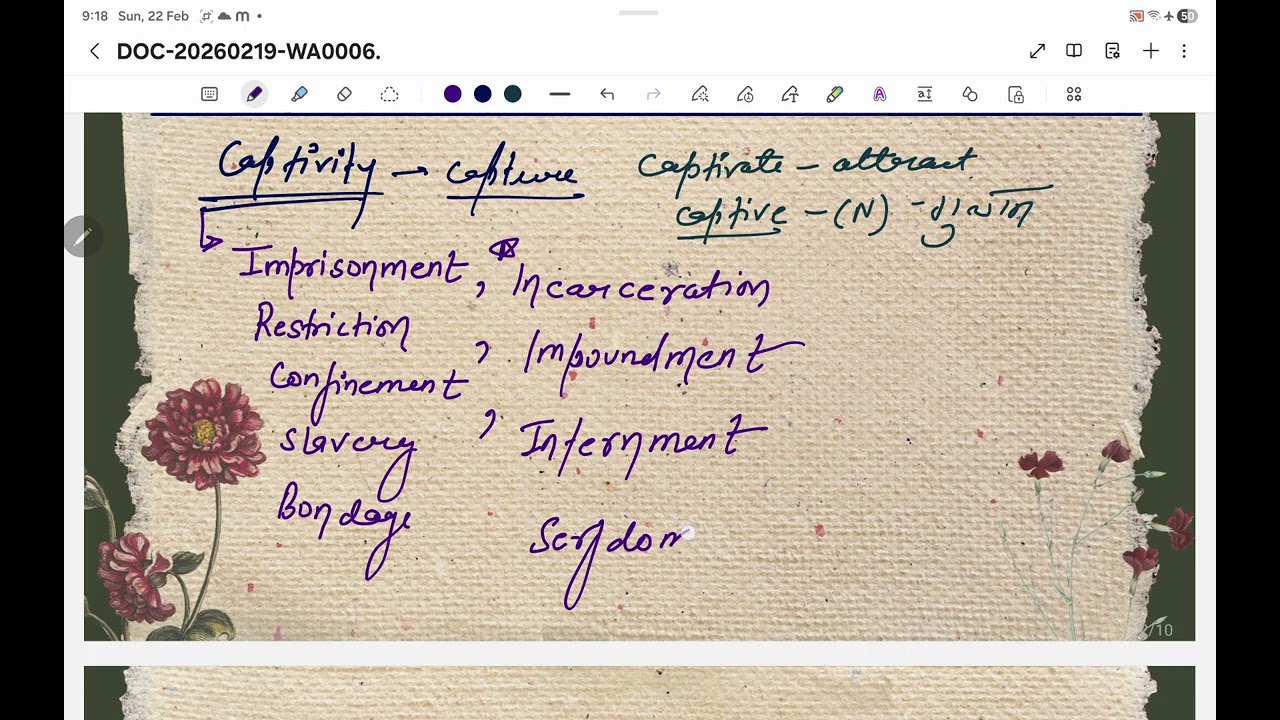 9:18 Sun, 22 Feb
50
DOC-20260219-WA0006.
Captivity → capture
Captivate - attract
captive - (N) -
Imprisonment, Incarceration
Restriction, Impoundment
Confinement, Internment
Slavery
Bondage
Serfdom
/10